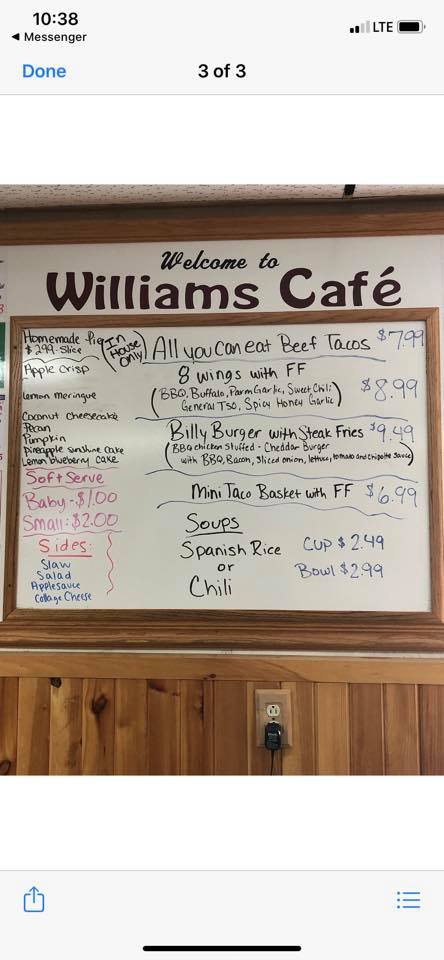 10:38
LTE
◀ Messenger
Done
3 of 3
Welcome to
Williams Café
Homemade Pie
$2.99 Slice
Apple Crisp
Lemon meringue
Coconut Cheesecake
Pecan
Pumpkin
Pineapple sunshine cake
Lemon blueberry cake
Soft Serve
Baby-$1.00
Small:$2.00
Sides:
Slaw
Salad
Applesauce
Cottage Cheese
(In House Only) All you can eat Beef Tacos $7.99
8 wings with FF $8.99
(BBQ, Buffalo, Parm Garlic, Sweet Chili
General Tso, Spicy Honey Garlic)
Billy Burger with Steak Fries $9.49
(BBQ chicken Stuffed - Cheddar Burger
with BBQ, Bacon, Sliced onion, lettuce, tomato and Chipotle Sauce)
Mini Taco Basket with FF $6.99
Soups
Spanish Rice
or
Chili
Cup $2.49
Bowl $2.99